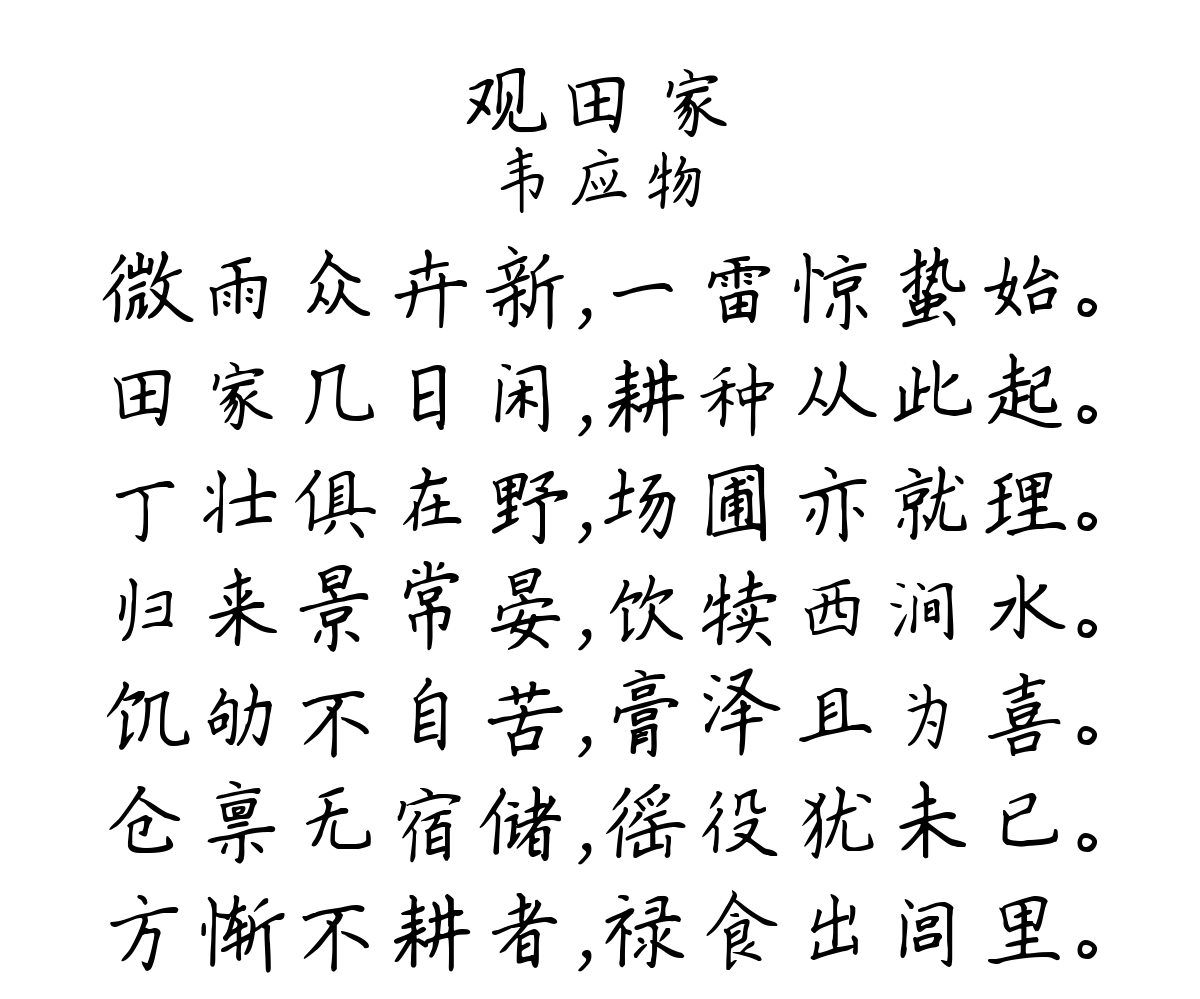 观田家
韦应物
微雨众卉新,一雷惊蛰始。
田家几日闲,耕种从此起。
丁壮俱在野,场圃亦就理。
归来景常晏,饮犊西涧水。
饥劬不自苦,膏泽且为喜。
仓禀无宿储,徭役犹未已。
方惭不耕者,禄食出闾里。